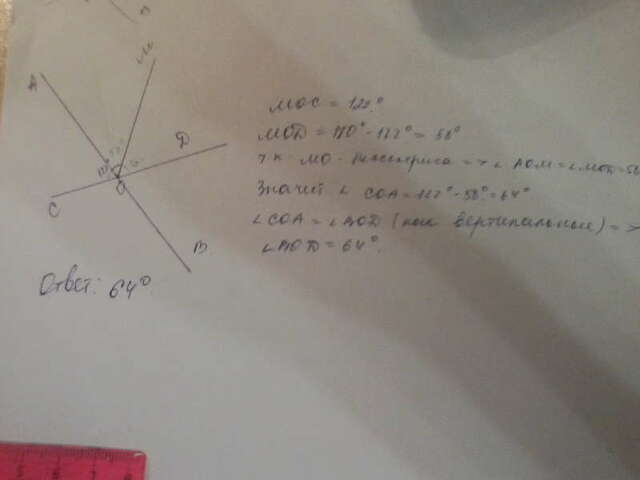 М
А
D
O
C
B
MOC = 122°
MOD = 180° - 122° = 58°
т.к. MO - биссектриса => ∠ AOM = ∠MOD = 58
Значит ∠ COA = 122° - 58° = 64°
∠COA = ∠BOD (как вертикальные) =>
∠BOD = 64°.
Ответ: 64°